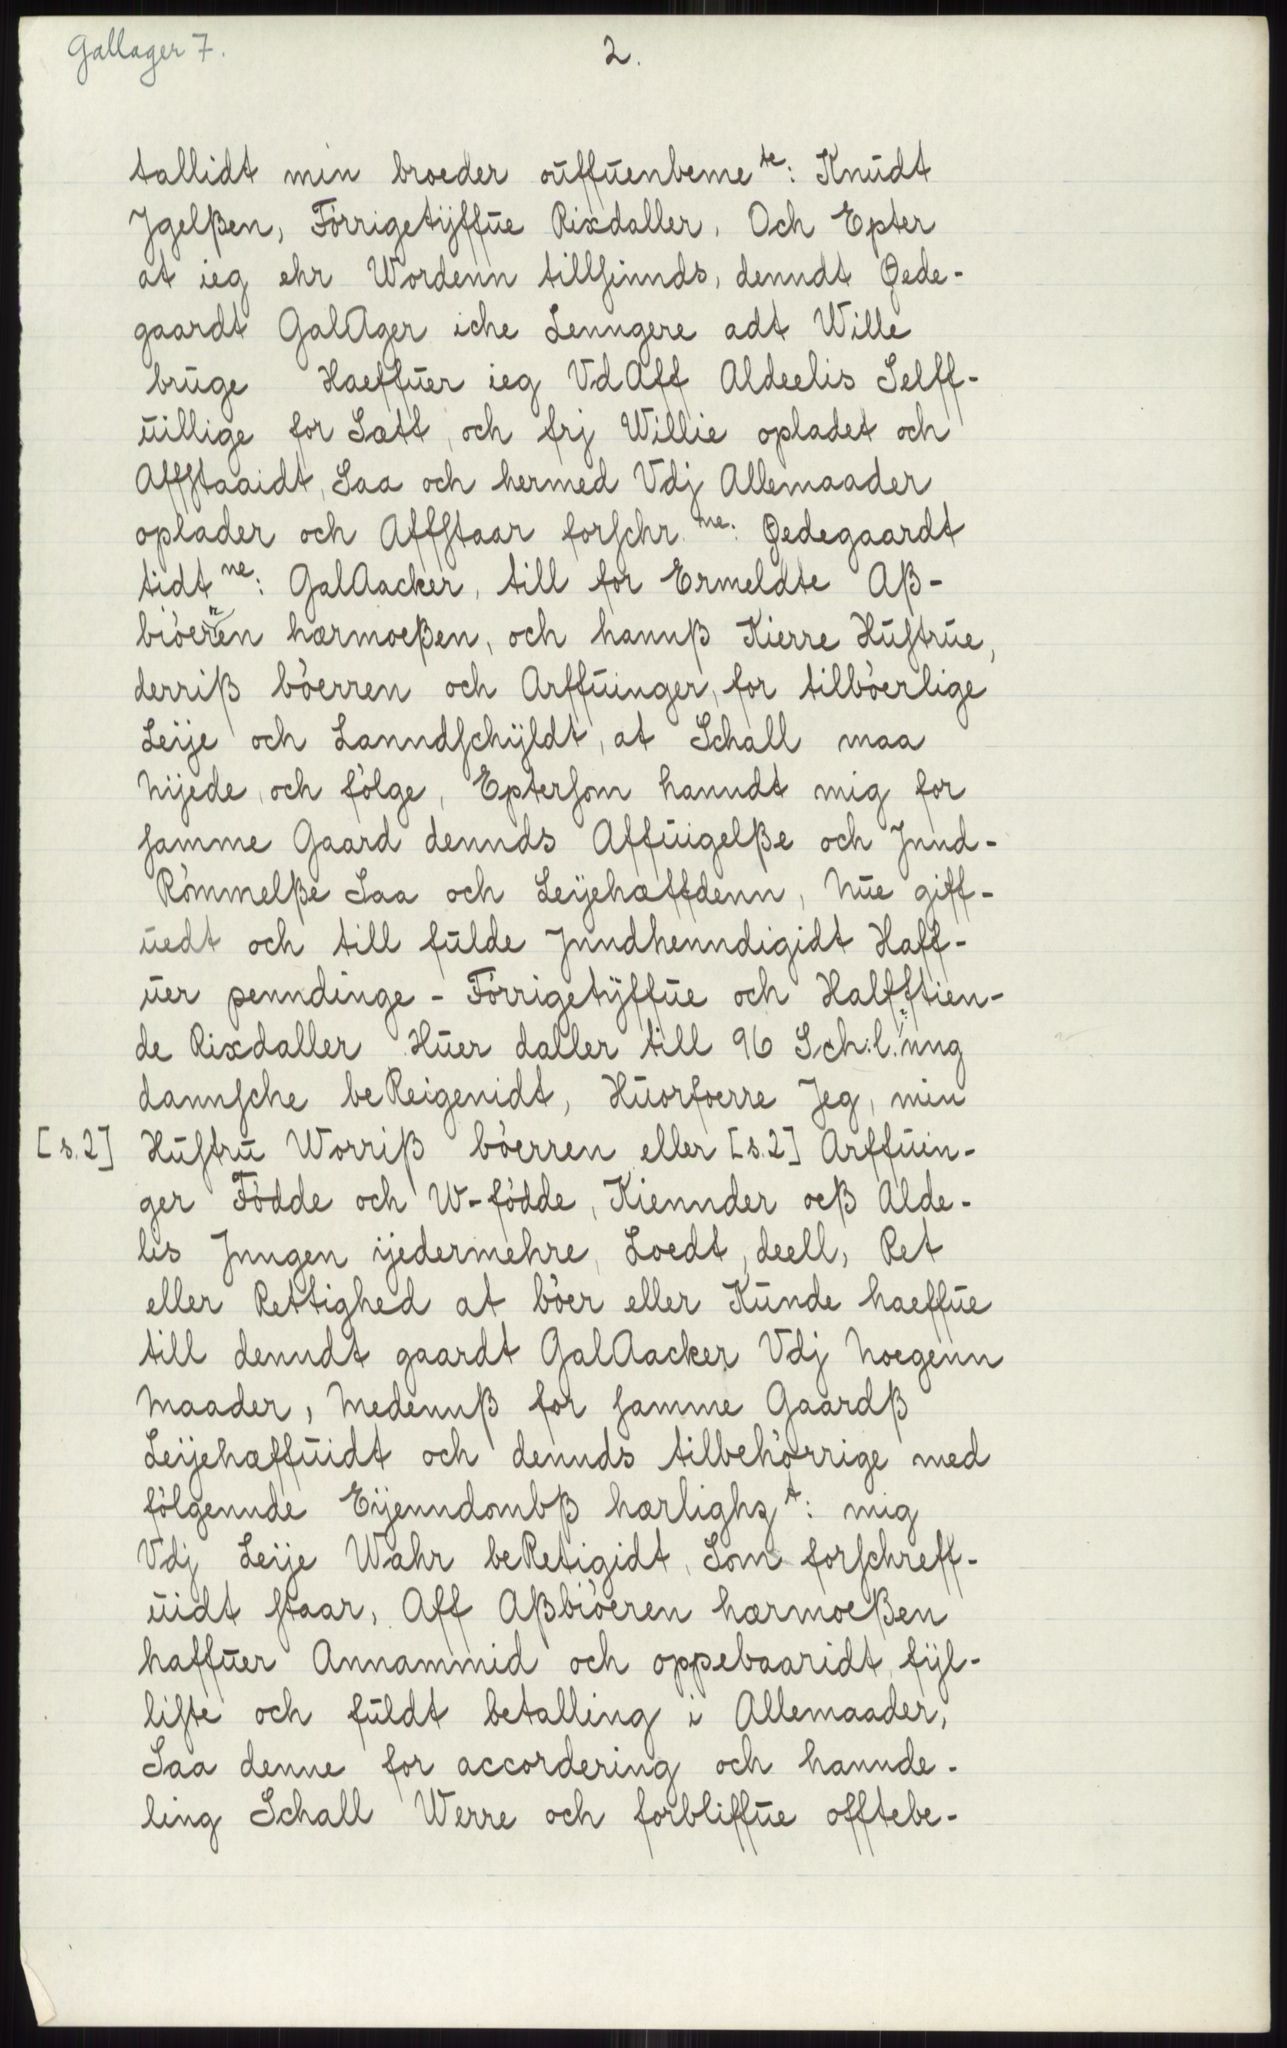 Gallager 7.
2.
tallidt min broeder ouffuenbeme te: Knudt
Jgelßen, Förrigetÿffue Rixdaller. Och Epter
at ieg ehr Wordenn tillsinnds, denndt Øede-
gaardt GalAger iche Lenngere adt Wille
bruge Haeffuer ieg VdAff Aldeelis Selff-
uillige for Sætt, och frj Willie opladet och
Affstaaidt, Saa och hermed Vdj Allemaader
oplader och Affstaar forschr ne: Øedegaardt
tidt ne: GalAacker, till for Ermeldte Aß-
biöeren hærmoeßen, och hannß Kierre Hustrue,
derriß böerren och Arffuinger, for tilböerlige
Leije och Lanndschÿldt, at Schall maa
Nijede, och fölge, Eptersom hanndt mig for
samme Gaard dennds Affuigelße och Jnnd-
Römmelße Saa och Leÿehæffdenn, Nue giff-
uedt och till fulde Jnndhenndigidt Haff-
uer penndinge - Förrigetÿffue och Halfftien-
de Rixdaller Huer daller till 96 Sch:l:inng
dannsche beReigenidt, Huorfoerre Jeg, min
[s.2] Hustru Worriß böerren eller [s.2] Arffuin-
ger Födde och W-födde, Kiennder oeß Alde-
lis Jnngen ijedermehre, Loedt, deell, Ret
eller Rettighed at böer eller Kunde haeffue
till denndt gaardt GalAacker Vdj Noegenn
Maader, Medennß for samme Gaardß
Leijehæffuidt och dennds tilbehörrige med
fölgennde Eÿenndombß hærlighz t: mig
Vdj Leije Wahr beRetigidt, Som forschreff-
uidt staar, Aff Aßbiöeren hærmoeßen
haffuer Annammid och oppebaaridt, fÿl-
liste och fuldt betalling i Allemaader,
Saa denne for accordering och hannde-
ling Schall Werre och forbliffue offtebe-